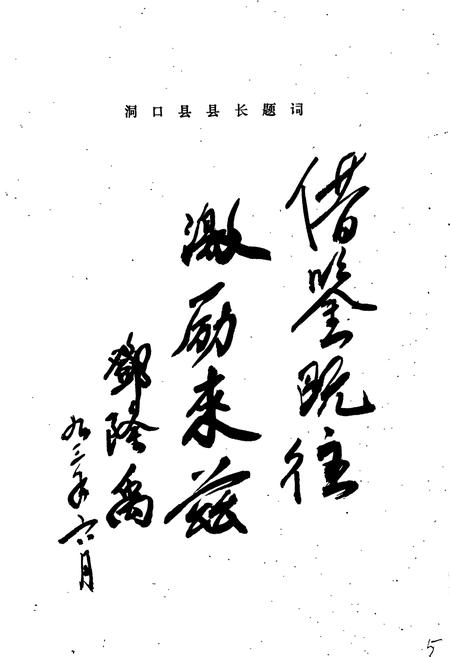 洞口县县长题词
借鉴既往
激励来兹
鄧隆禹
九三年六月
5